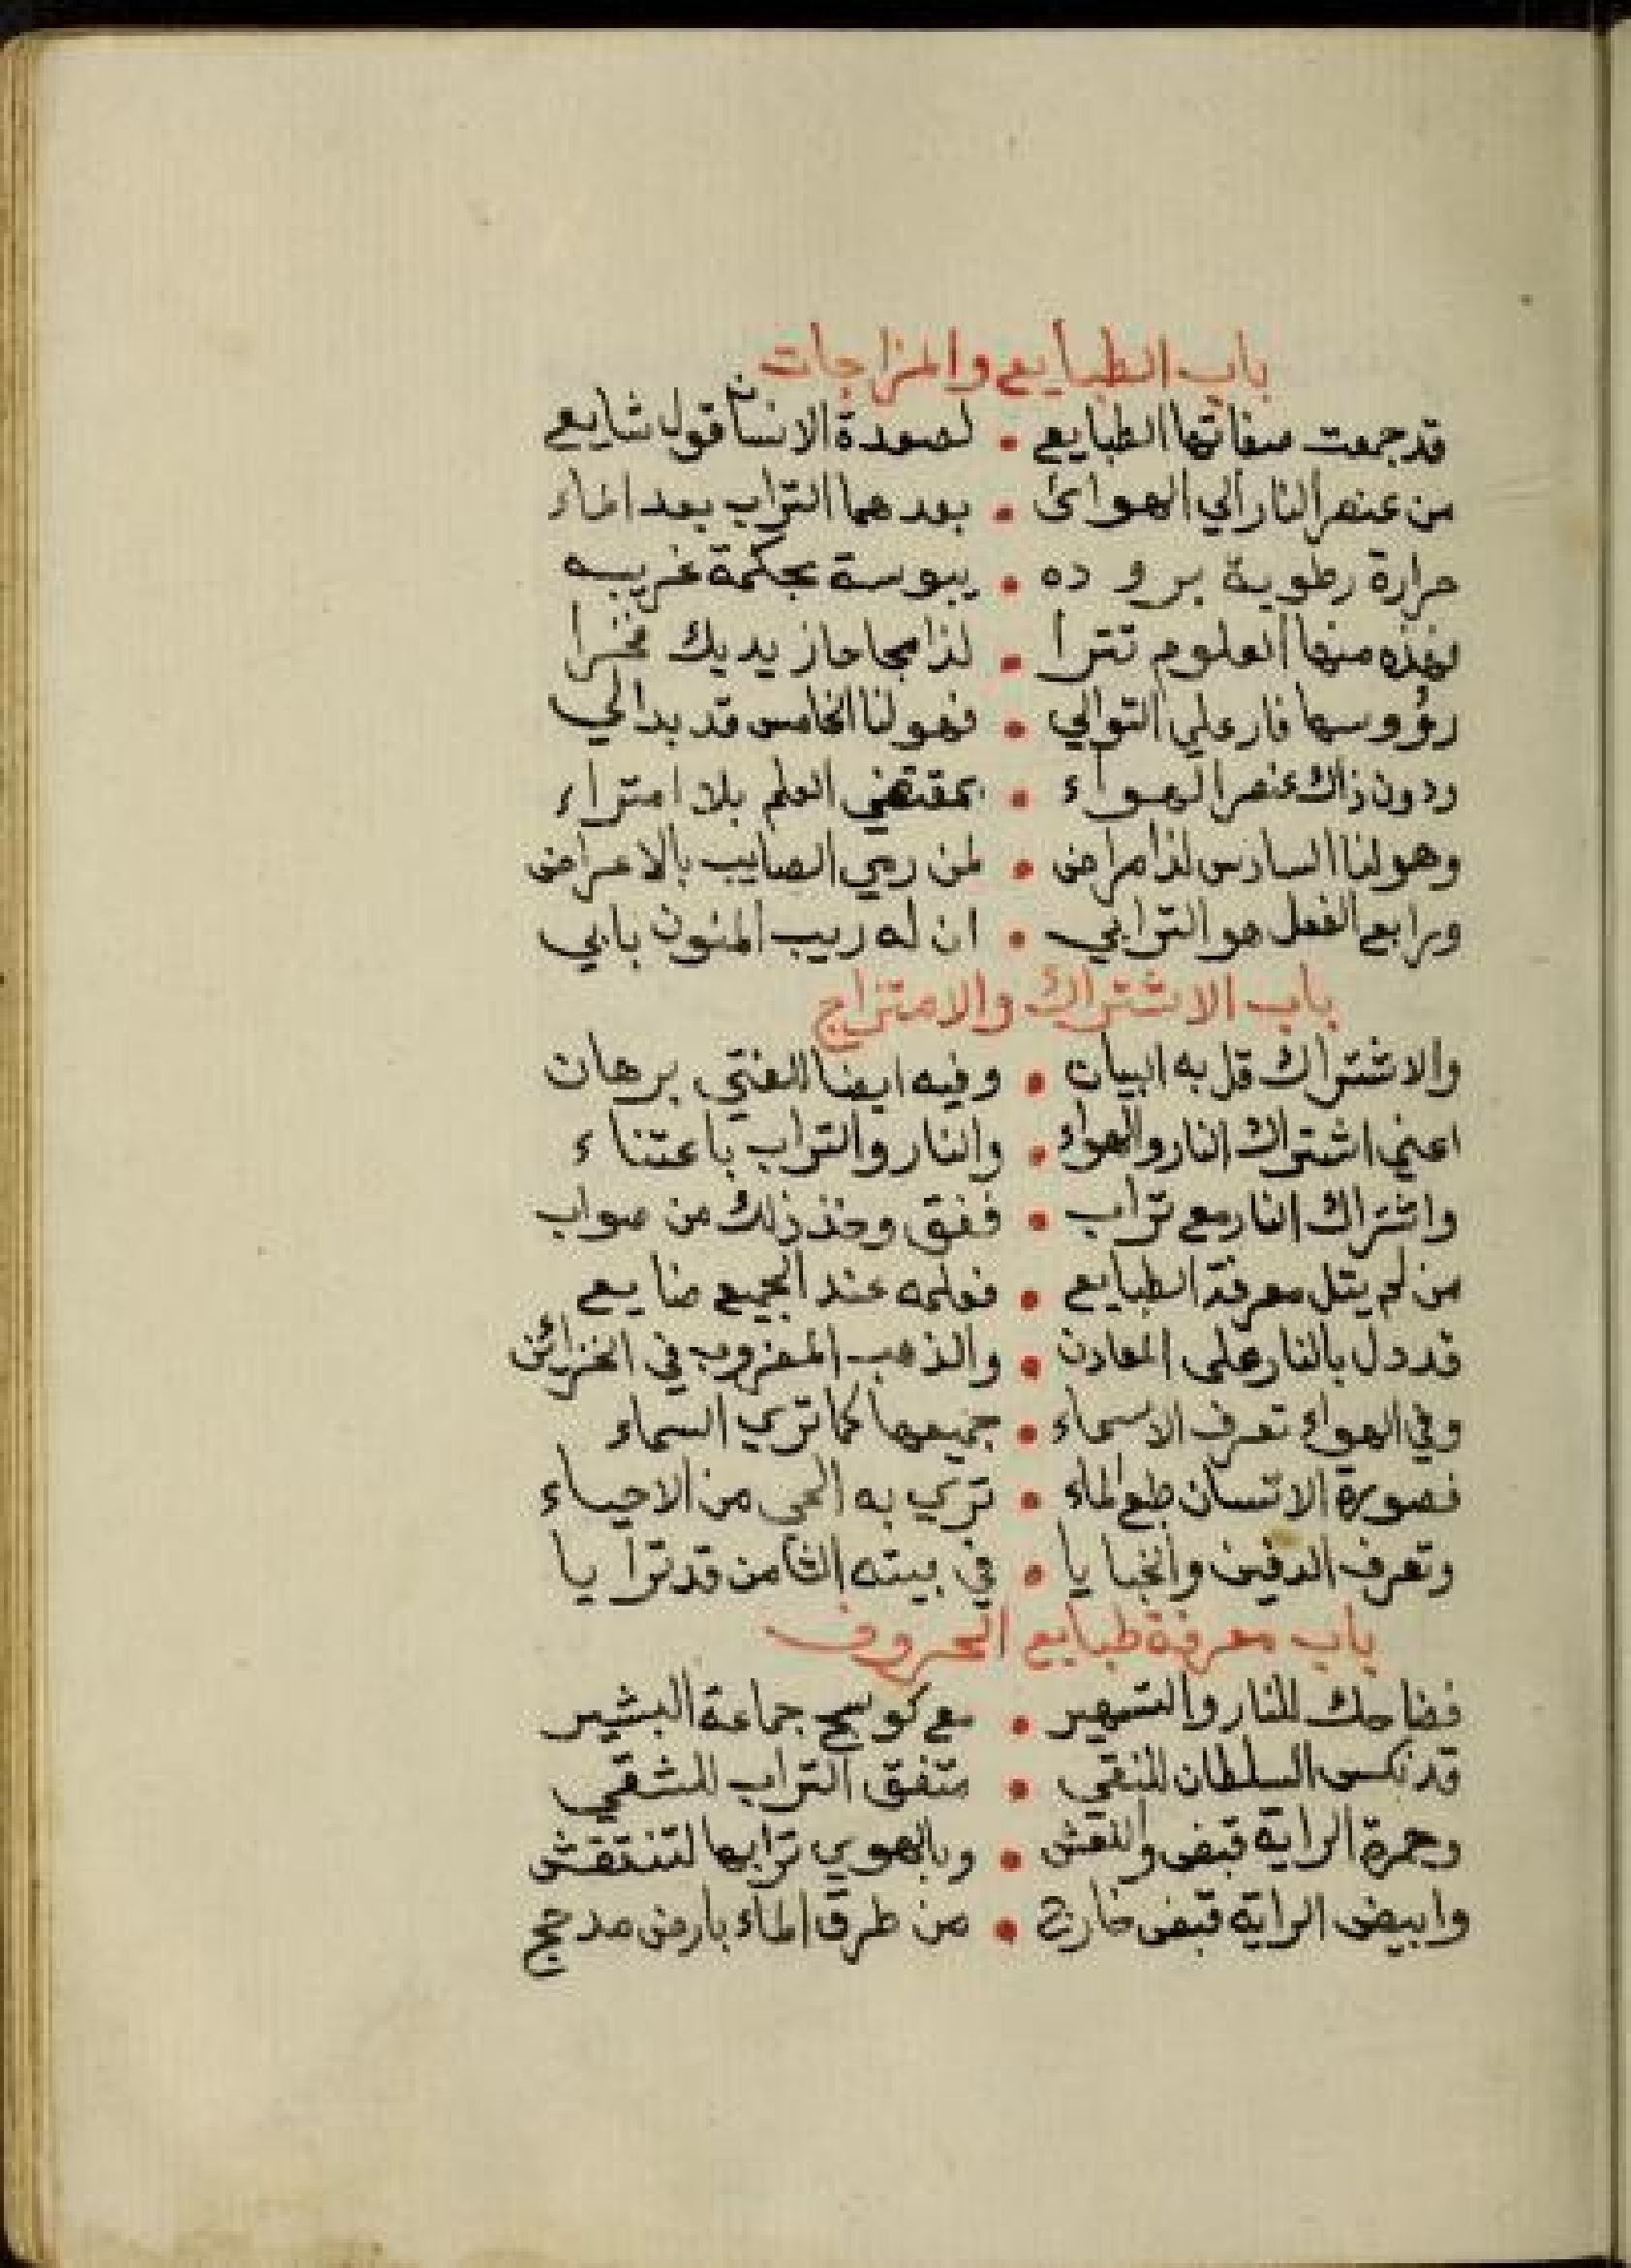 باب الطبايع والمزاجات
قد جمعت صفاتها الطبايع • لصورة الانسان قول شايع
من عنصر النار الي الهوائ • بعدهما التراب بعد الماء
حرارة رطوبة بروده • يبوسة بحكمة غريبه
لهذه منها العلوم تترا • لذا يديك فخرا
رؤوسها فار علي التوالي • فهو لنا الخامس قد بدالي
ودون ذاك عنصر الهواء • بمقتضي العلم بلا امتراء
وهو لنا السادس لذا مراض • لمن رمي الصايب بالاعراض
ورابع الفعل هو الترابي • ان له ريب المنون بابي
باب الاشتراك والامتزاج
والاشتراك قل به البيان • وفيه ايضا للفتي برهان
اعني اشتراك النار والهواء • والنار والتراب باعتناء
واشتراك النار مع تراب • ففق وخذ ذلك من صواب
من لم ينل معرفة الطبايع • فعلمه عند الجميع ضايع
قد دل بالنار على المعادن • والذهب المضروب في الخزائن
وفي الهواء تعرف الاسماء • جميعها كما تري السماء
فصورة الانسان طبع الماء • تري به الحي من الاحياء
وتعرف الدفين والخبايا • في بيته الثامن قد ترايا
باب معرفة طبايع الحروف
فضاحك للنار والتسهير • مع كوسج جماعة البشير
قد نكس السلطان للنقي • متفق التراب للشقي
وحمرة الراية قبض والنقش • وبالهوي ترابها لتنتقش
وابيض الراية قبض خارج • من طرق الماء بارض مدحج